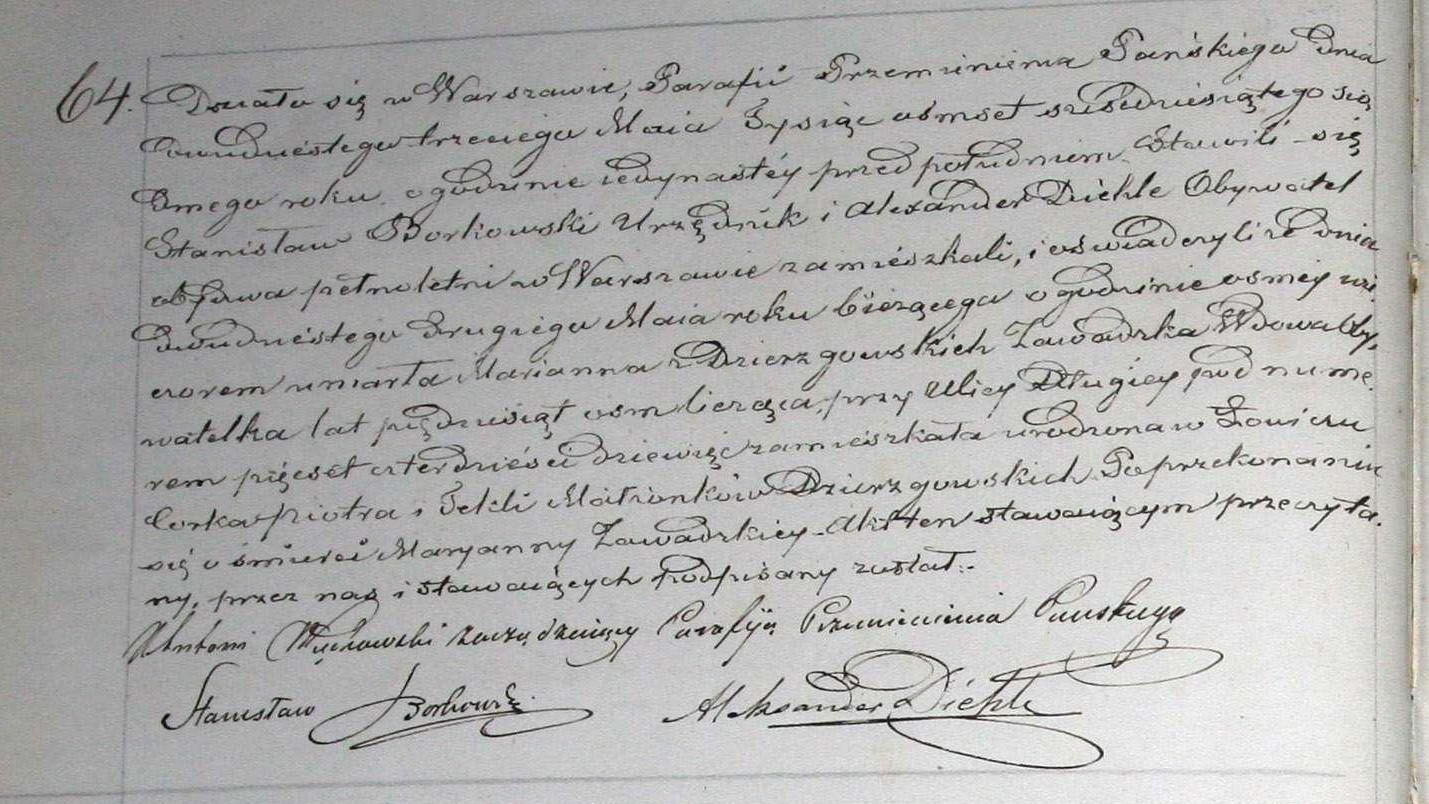 64. Działo się w Warszawie, Parafii Przemienienia Pańskiego dnia
dwudziestego trzeciego Maia Tysiąc ośmset sześdziesiątego sió
dmego roku o godzinie iedynastéy przed południem. Stawili się
Stanisław Borkowski Urzędnik i Alexander Diehle Obywatel
obydwa pełnoletni w Warszawie zamieszkali, i oświadczyli że dnia
dwudziestego drugiego Maia roku bieżącego o godzinie osmey wie
czorem umarła Marianna z Dzierzgowskich Zawadzka Wdowa Oby,
watelka lat piędziesiąt osm licząca, przy Ulicy Długiey pod nume
rem pięcset czterdzieści dziewięć zamieszkała urodzona w Łowiczu
Corka Piotra i Tekli Małżonków Dzierzgowskich. Po przekonaniu
się o śmierci Maryanny Zawadzkiey. Akt ten stawaiącym przeczyta.
ny, przez nas i stawaiących podpisany został.-
X Antoni zarządzaiący Parafiją Przemienienia Pańskiego
Stanisław Borkowski Aleksander Diehle